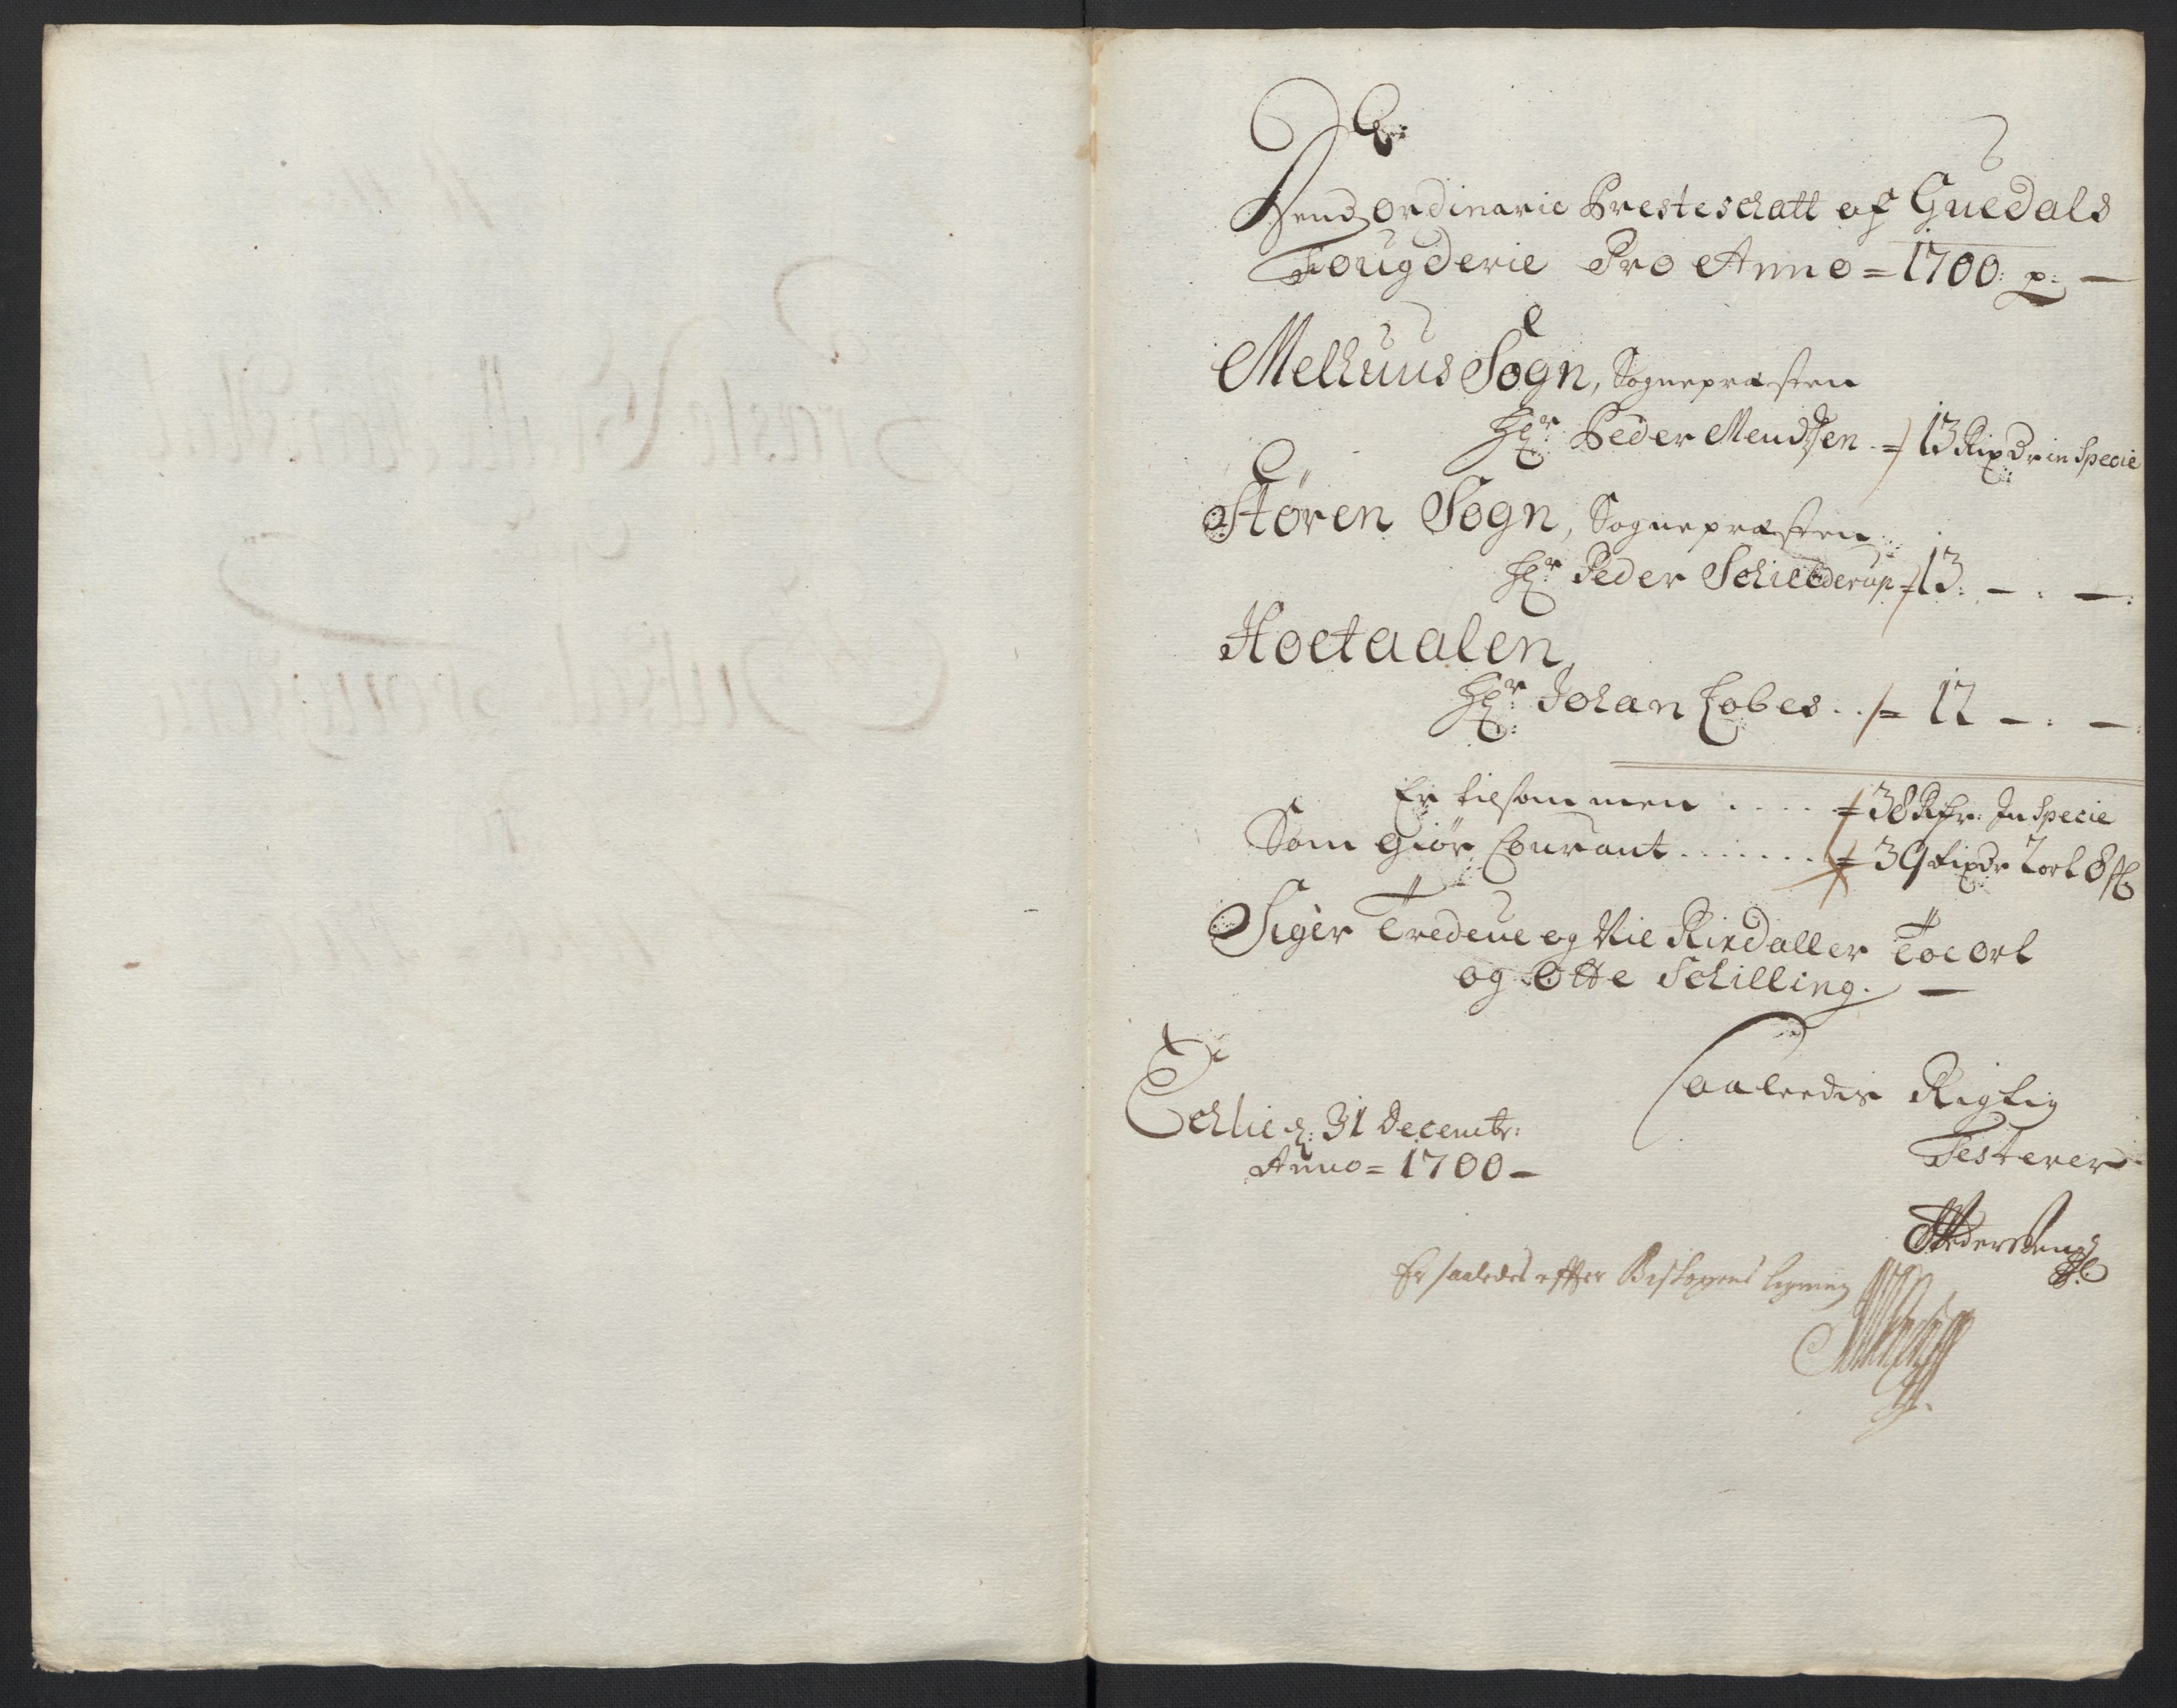 Dend ordinarie Presteschatt af Guedals
Fougderie Pro Anno = 1700: p: —
Melhuus Sogn, Sognepræsten
Hr: Peder Mendsen = 13 Rixdr in Specie
Støren Sogn, Sognepræsten
Hr: Peder Schielderup = 13: — : —:
Hoetaalen,
Hr: Johan Cobes . . = 12 — : —:
Er tilsammen . . . . = 38 Rdr: In Specie
Som Giør Courant . . . . . . . = 39 Rixdr 2 ort 8 s
Siger Tredeve og Nie Rixdaller Toe Ort
og Otte Schilling. —
Saaleedis Rigtig
d: 31 Decembr:
Testerer
Anno = 1700 —
Er saaledes efter Biskopens ligning